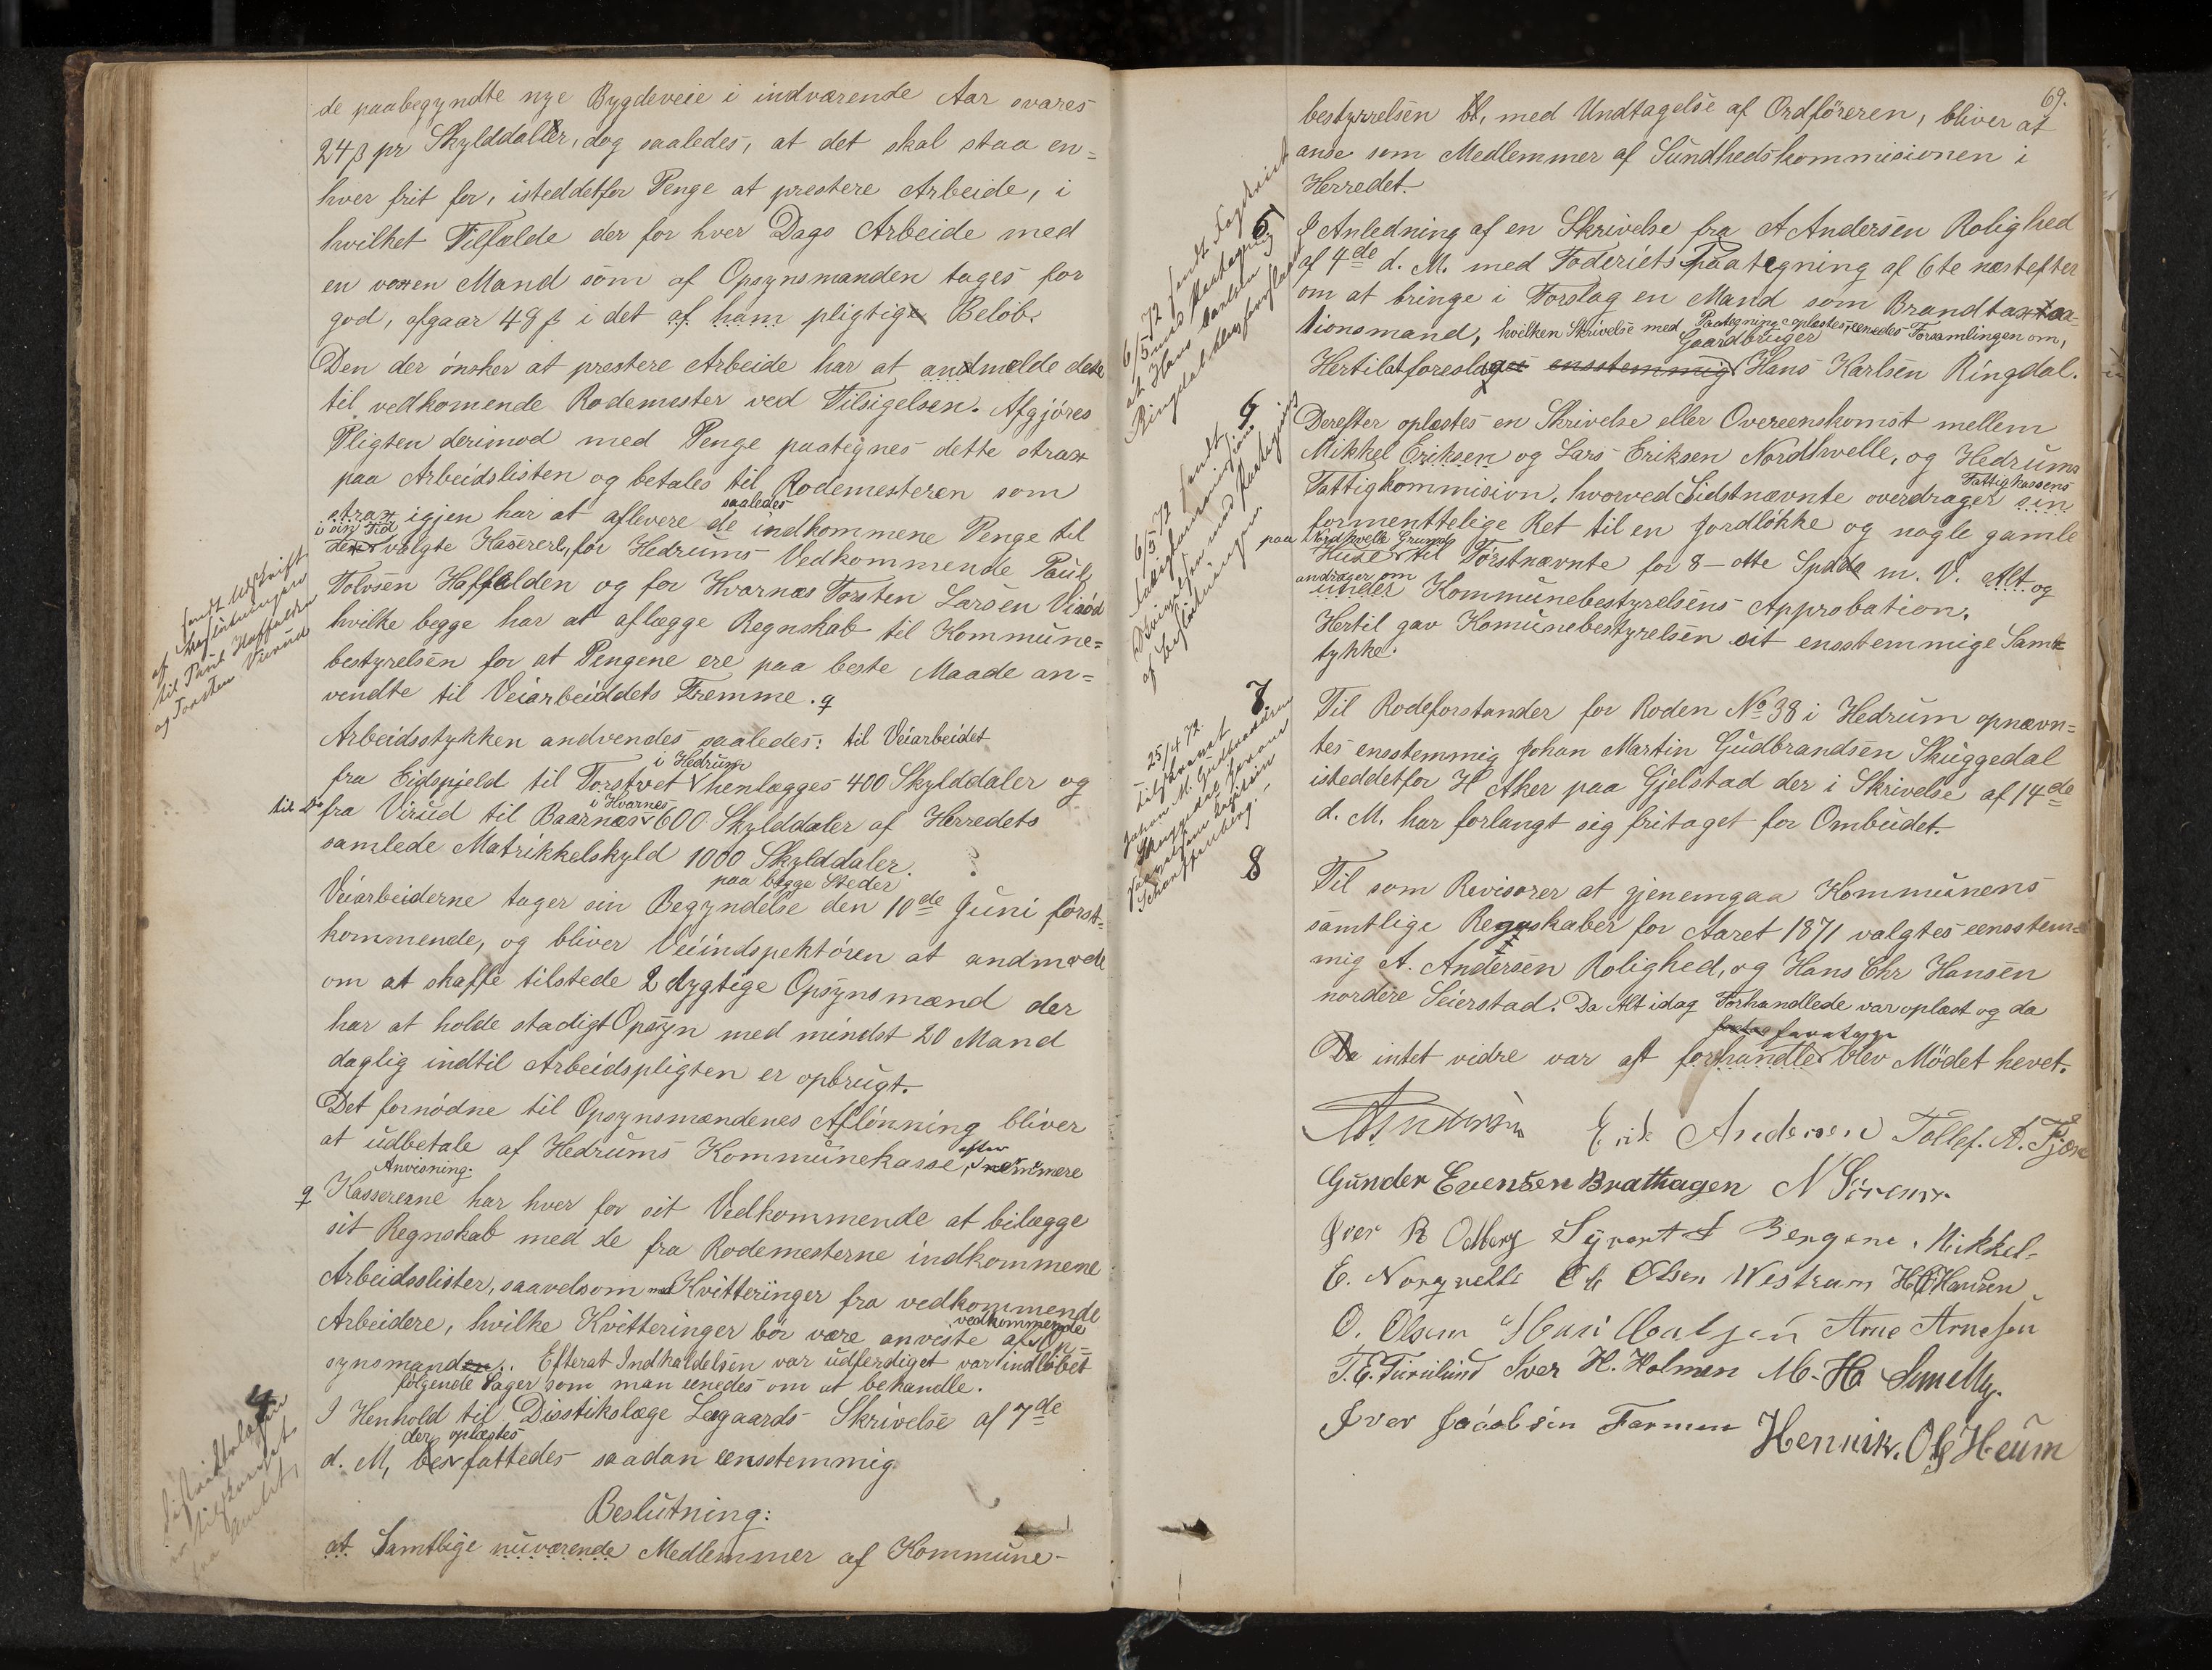 de paabegyndte nye Bygdeveie i indværende Aar svares
24 ß pr Skylddaler, dog saaledes, at det skal staa en=
hver frit for, isteddetfor Penge at prestere Arbeide, i
hvilket Tilfælde der for hver Dags Arbeide med
en voxen Mand som af Opsynsmanden tages for
god, afgaar 48 ß i det af ham pligtige Beløb.
Den der ønsker at prestere Arbeide har at andmælde dette
til vedkomende Rodemester ved Tilsigelsen. Afgjøres
Pligten derimod med Penge paategnes dette strax
paa Arbeidslisten og betales til Rodemesteren som
saaledes
strax igjen har at aflevere de indkommene Penge til
i sin Tid
den valgte Kasserere, for Hedrums Vedkommende Paul
Tolvsen Haffalden og for Hvarnæs Torsten Larsen Virød
hvilke begge har at aflægge Regnskab til Kommune=
bestyrelsen for at Pengene ere paa beste Maade an=
vendte til Veiarbeiddets Fremme. q
sendt Udskrift
af Beslutningen
til Paul Haffalden
og Torsten Virrud
Arbeidsstykken andvendes saaledes: til Veiarbeidet
i Hedrum
fra Eidspjeld til Torstvet henlægges 400 Skylddaler og
i Hvarnes
til Do fra Virud til Baarnæs 600 Skylddaler af Herredets
samlede Matrikkelskyld 1000 Skylddaler.
paa begge Steder
Veiarbeiderne tager sin Begyndelse den 10de Juni først=
kommende, og bliver Veiindspektøren at andmode
om at skaffe tilstede 2 dygtige Opsynsmænd der
har at holde stadigt Opsyn med mindst 20 Mand
daglig indtil Arbeidspligten er opbrugt.
Det fornødne til Opsynsmændenes Aflønning bliver
at udbetale af Hedrums Kommunekasse, efter nærmere
Anvisning.
q Kassererne har hver for sit Vedkommende at bilægge
sit Regnskab med de fra Rodemesterne indkommene
Arbeidslister, saavelsom med Kvitteringer fra vedkommende
Arbeidere, hvilke Kvitteringer bør være anviste af vedkommende Op=
synsmand. Efterat Indkaldelsen var udferdiget var indløbet
følgende Sager som man eenedes om at behandle.
4
I Henhold til Disstikslæge Lagaards Skrivelse af 7de
der oplæstes
d. M, besfattedes saadan eensstemmig
Beslutning:
at Samtlige nuværende Medlemmer af Kommune-
69.
bestyrrelsen, med Undtagelse af Ordføreren, bliver at
anse som Medlemmer af Sundhedskommisionen i
Herredet.
5
I Anledning af en Skrivelse fra A Andersen Rolighed
af 4de d. M. med Foderiets Paategning af 6te næstefter
om at bringe i Forslag en Mand som Brandtaxta=
tionsmand, hvilken Skrivelse med Paategning oplæstes, eenedes Forsamlingen om,
Gaardbruger
Hertil at foreslages ensstemmig Hans Karlsen Ringdal.
6
Derefter oplæstes en Skrivelse eller Overeenskomst mellem
Mikkel Eriksen og Lars Eriksen Nordhvelle, og Hedrums
Fattigkassens
Fattigkommision, hvorved Sidstnævnte overdrager sin
formenttelige Ret til en Jordløkke og nogle gamle
paa Nordhvelle Grund
Huse til Førstnævnte for 8 – otte Spddr m. V. Alt og
andrager om
under Kommunebestyrelsens Approbation.
Hertil gav Komunebestyrelsen sit ensstemmige Sam=
tykke.
7
Til Rodeforstander for Roden No 38 i Hedrum opnævn=
tes ensstemmig Johan Martin Gudbrandsen Skuggedal
isteddetfor H Aker paa Gjelstad der i Skrivelse af 14de
d. M. har forlangt sig fritaget for Ombudet.
25/4 72.
tilskrevet
Johan M. Gudbrandsen
Skuggedal
8
Til som Revisorer at gjenemgaa Kommunens
samtlige Regnskaber for Aaret 1871 valgtes eensstem=
mig A. Andersen Rolighed, og Hans Chr Hansen
nordere Seierstad. Da Alt idag Forhandlede var oplæst og da
foretage
Da intet vidre var at forhandle blev Mödet hevet.
Erik Andersen Tollef. A.
Gunder Evensen Brathagen N Sörensen
Iver R Odberg Syvert Bergene, Mikkel-
E. Norqvelle Ole Olsen Westrum H C Hansen
O. Olsen Hans Carlsen Arne Arnesen
Iver H. Holmen M. H.
Iver Jacobsen Farmen Hennik. Ols Heum